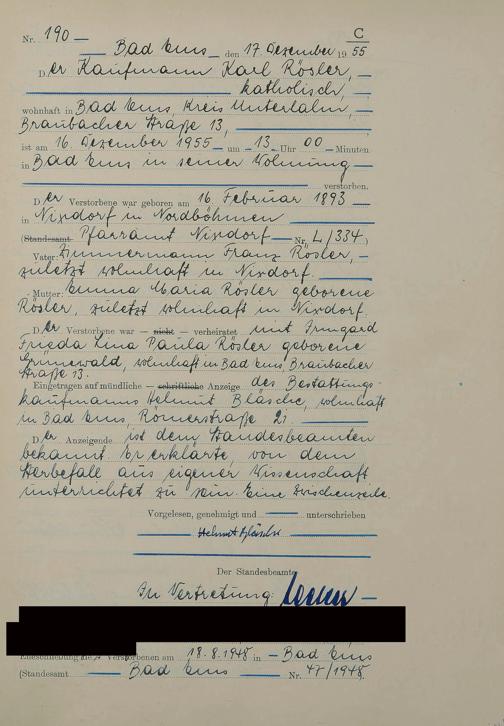 C
Nr. 190
Bad Ems, den 17. Dezember 1955
Der Kaufmann Karl Rösler,
katholisch,
wohnhaft in Bad Ems, Kreis Unterlahn,
Braubacher Straße 13,
ist am 16. Dezember 1955 um 13 Uhr 00 Minuten
in Bad Ems in seiner Wohnung
verstorben.
Der Verstorbene war geboren am 16. Februar 1893
in Nixdorf in Nordböhmen
(Standesamt Pfarramt Nixdorf Nr. L/334.)
Vater: Zimmermann Franz Rösler,
zuletzt wohnhaft in Nixdorf.
Mutter: Emma Maria Rösler geborene
Rösler, zuletzt wohnhaft in Nixdorf.
Der Verstorbene war nicht verheiratet mit Irmgard
Frieda Lina Paula Rösler geborene
Grünewald, wohnhaft in Bad Ems Braubacher
Straße 13.
Eingetragen auf mündliche schriftliche Anzeige des Bestattungs-
kaufmanns Helmut Bläsche, wohnhaft
in Bad Ems, Römerstraße 21.
Der Anzeigende ist dem Standesbeamten
bekannt. Er erklärte, von dem
Sterbefall aus eigener Wissenschaft
unterrichtet zu sein. Eine Zwischenzeile.
Vorgelesen, genehmigt und unterschrieben
Helmut Bläsche
Der Standesbeamte
In Vertretung:
Eheschließung des Verstorbenen am 18.8.1948 in Bad Ems
(Standesamt Bad Ems Nr. 47/1948.